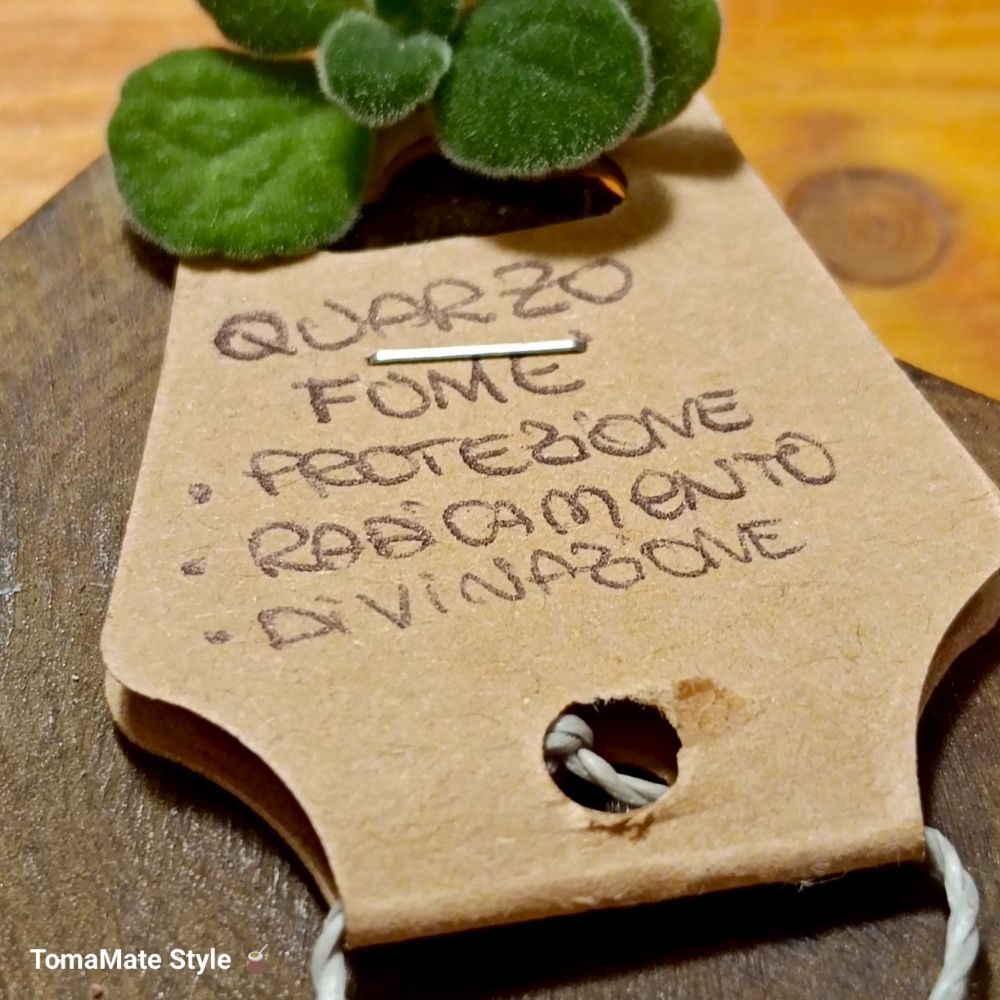 QUARZO
FUMÉ
• PROTEZIONE
• RADICAMENTO
• DIVINAZIONE
TomaMate Style 🧉